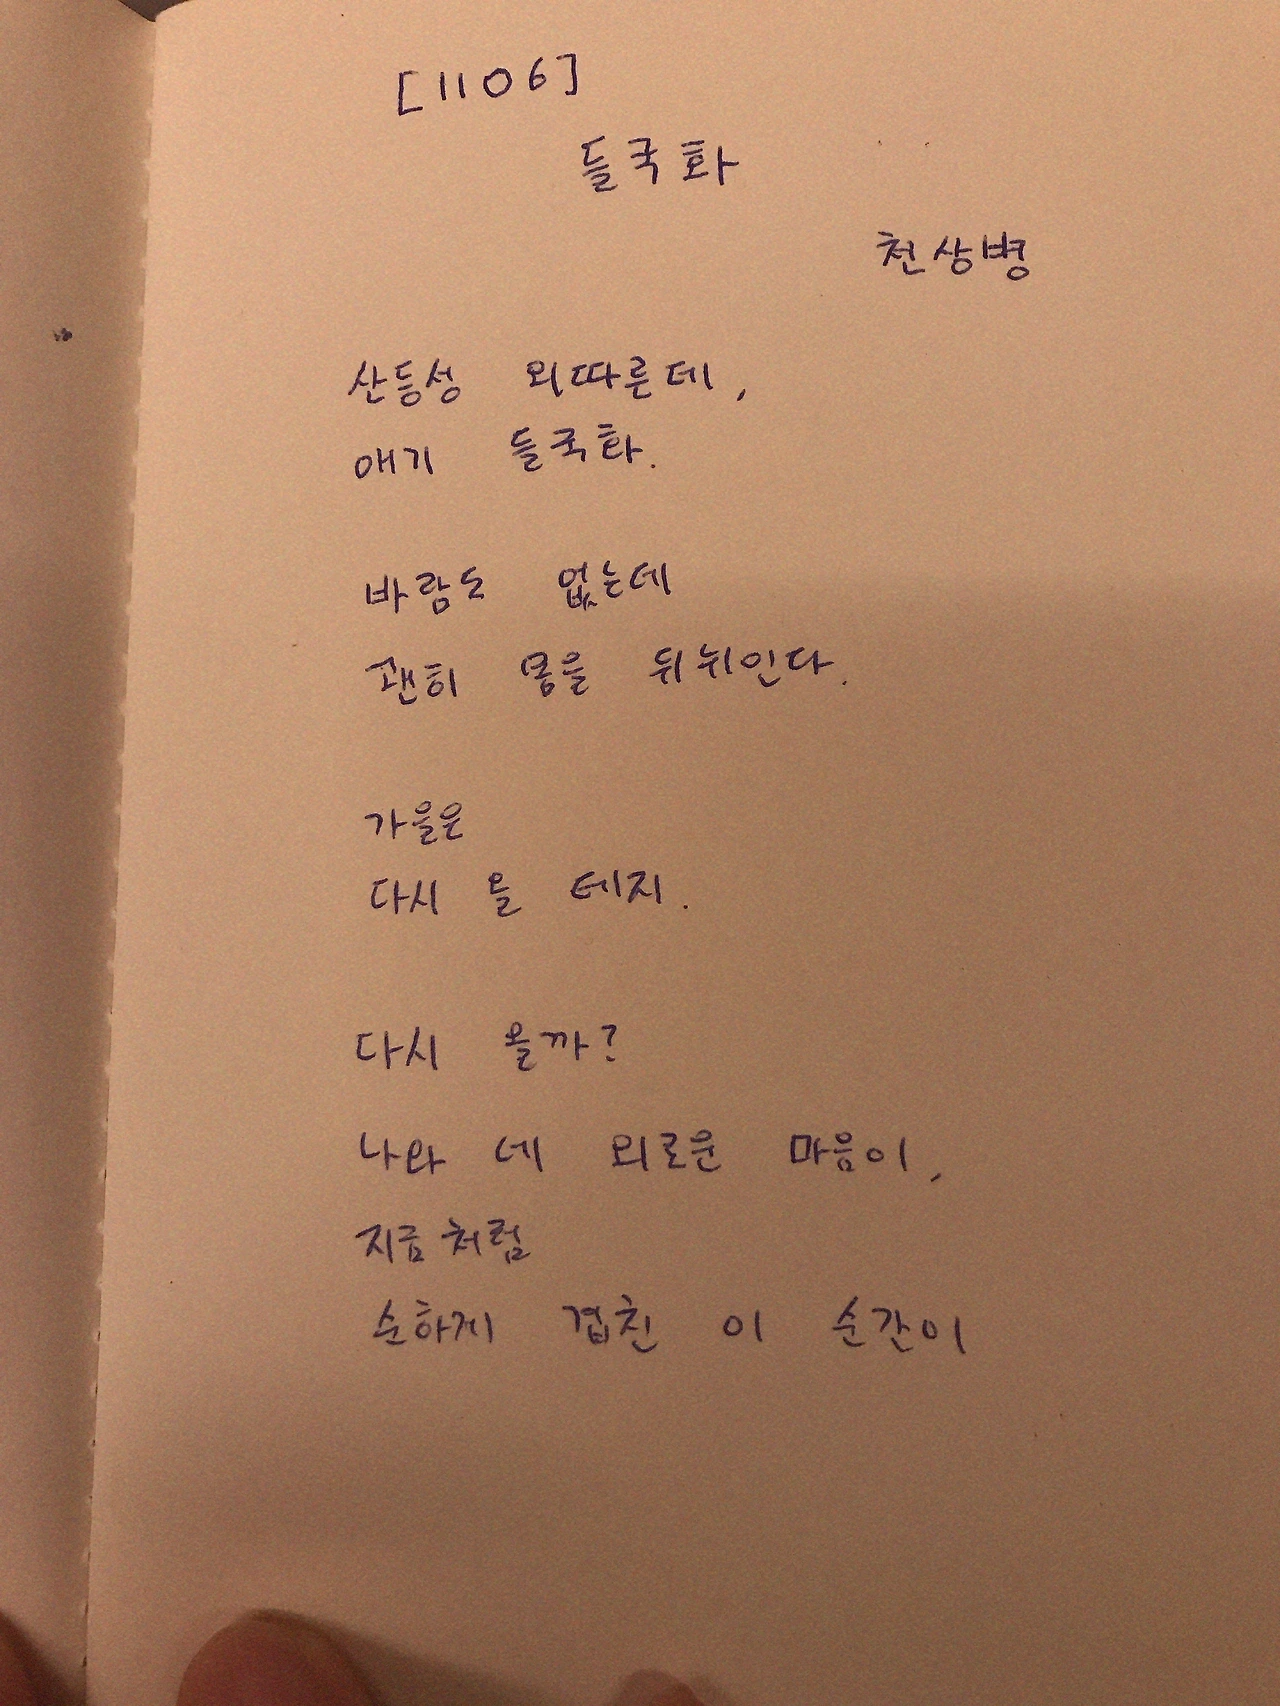 [1106]
들국화
천상병
산등성 외따른데,
애기 들국화.
바람도 없는데
괜히 몸을 뒤뉘인다.
가을은
다시 올 테지.
다시 올까?
나와 네 외로운 마음이,
지금처럼
순하게 겹친 이 순간이